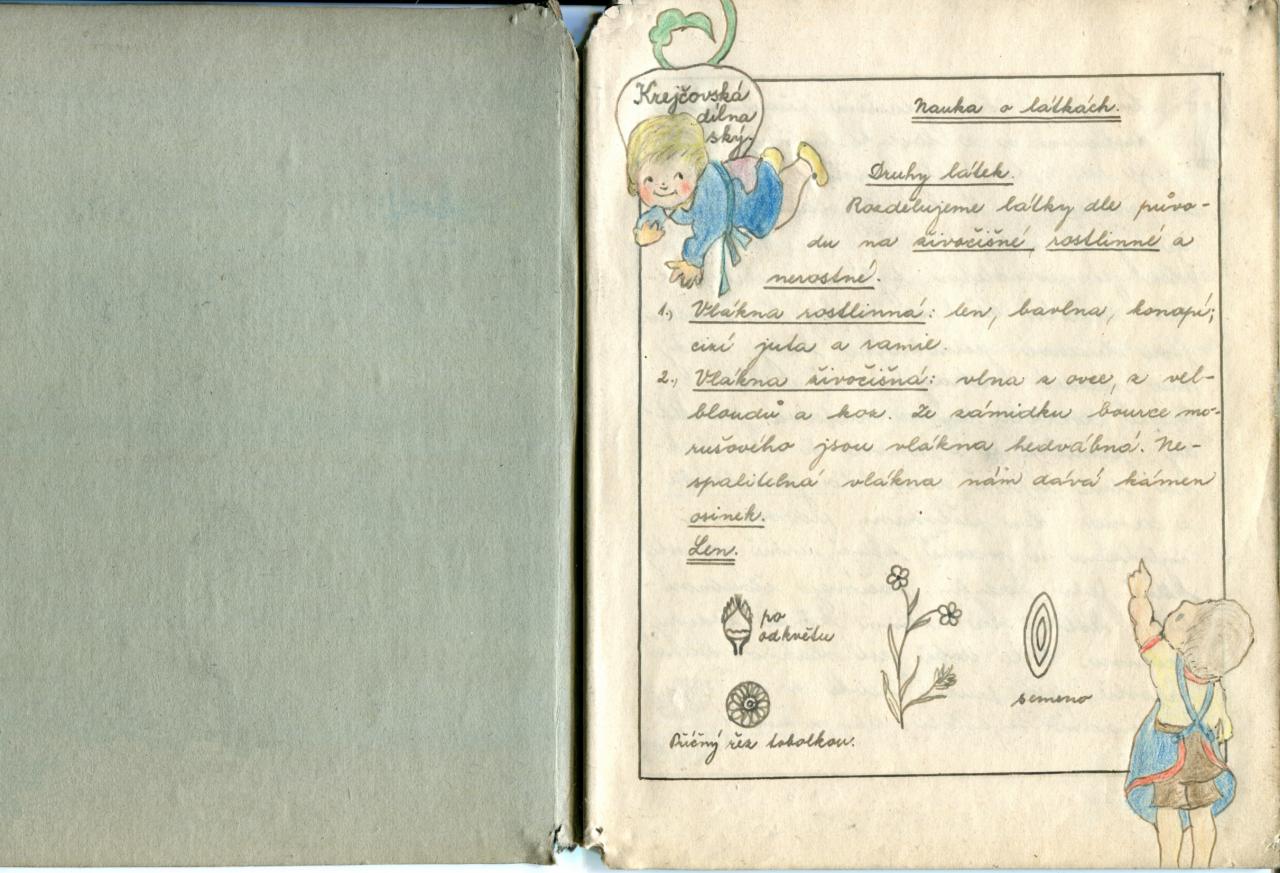 Krejčovská
dílna
ský.
Nauka o látkách.
Druhy látek.
Rozdělujeme látky dle půvo-
du na živočišné, rostlinné a
nerostné.
1., Vlákna rostlinná: len, bavlna, konopí;
cizí juta a ramie.
2., Vlákna živočišná: vlna z ovce, z vel-
bloudů a koz. Ze zámidku bource mo-
rušového jsou vlákna hedvábná. Ne-
spalitelná vlákna nám dává kámen
osinek.
Len.
po
odkvětu
semeno
Příčný řez tobolkou.